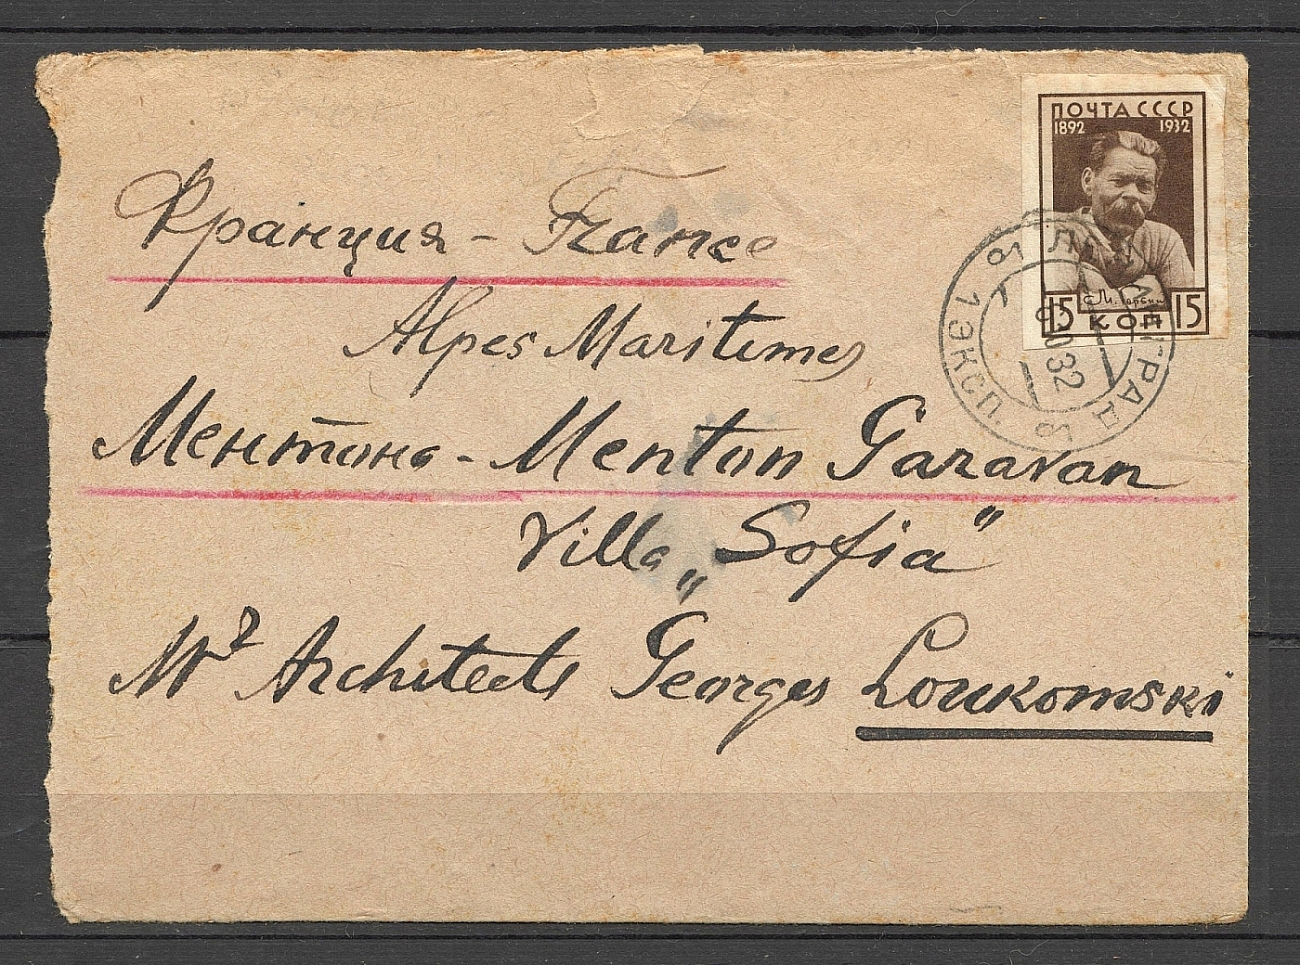 ПОЧТА СССР
1892 1932
М. Горький
15 КОП 15
ЛЕНИНГРАД
1 ЭКСП.
10 32
Франция - France
Alpes Maritimes
Ментона - Menton Garavan
Villa „Sofia"
Mr Architecte Georges Loukomski